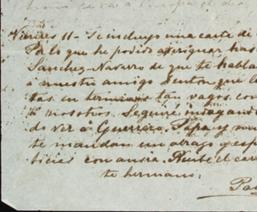 Viernes 11 - Te incluyo una carte de
Pals que he podido averiguar has
Sanchez Navarro de que te habla
á nuestro amigo Denton que l
tas en terminos tan vagos, con
te nosotros. Seguiré indagand
de ver á Guerrero. Papa y
te mandan un abrazo y esp
ticias con ansia. Recibe el car
te hermano: